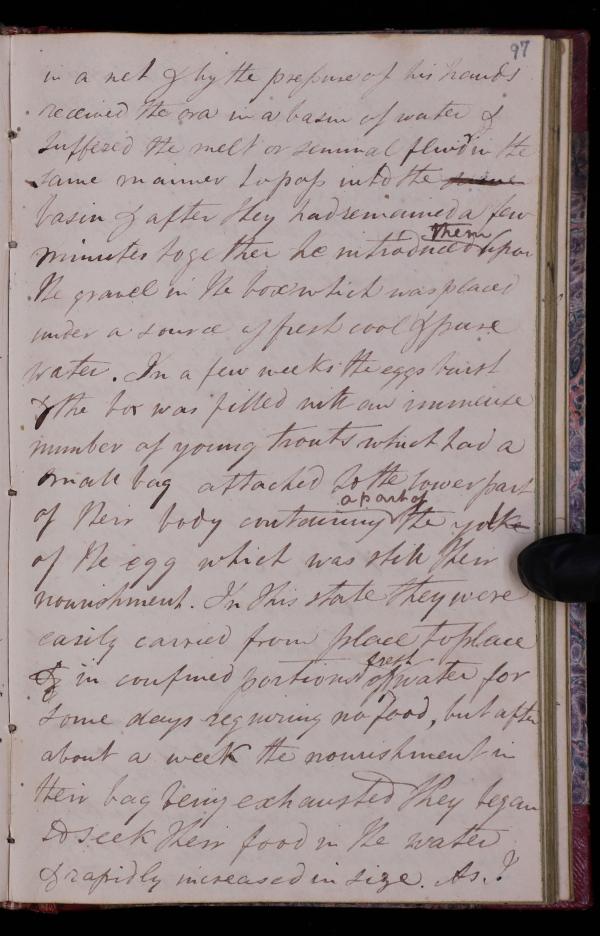 97
in a net & by the pressure of his hands
received the ova in a basin of water &
suffered the melt or seminal fluid in the
same manner to pass into the same
basin & after they had remained a few
minutes together he introduced them upon
the gravel in the box which was placed
under a source of fresh cool & pure
water. In a few weeks the eggs burst
& the box was filled with an immense
number of young trouts which had a
small bag attached to the lower part
of their body containing a part of the yolk
of the egg which was still their
nourishment. In this state they were
easily carried from place to place
& in confined portions of fresh water for
some days requiring no food, but after
about a week the nourishment in
their bag being exhausted they began
to seek their food in the water
& rapidly increased in size. As I